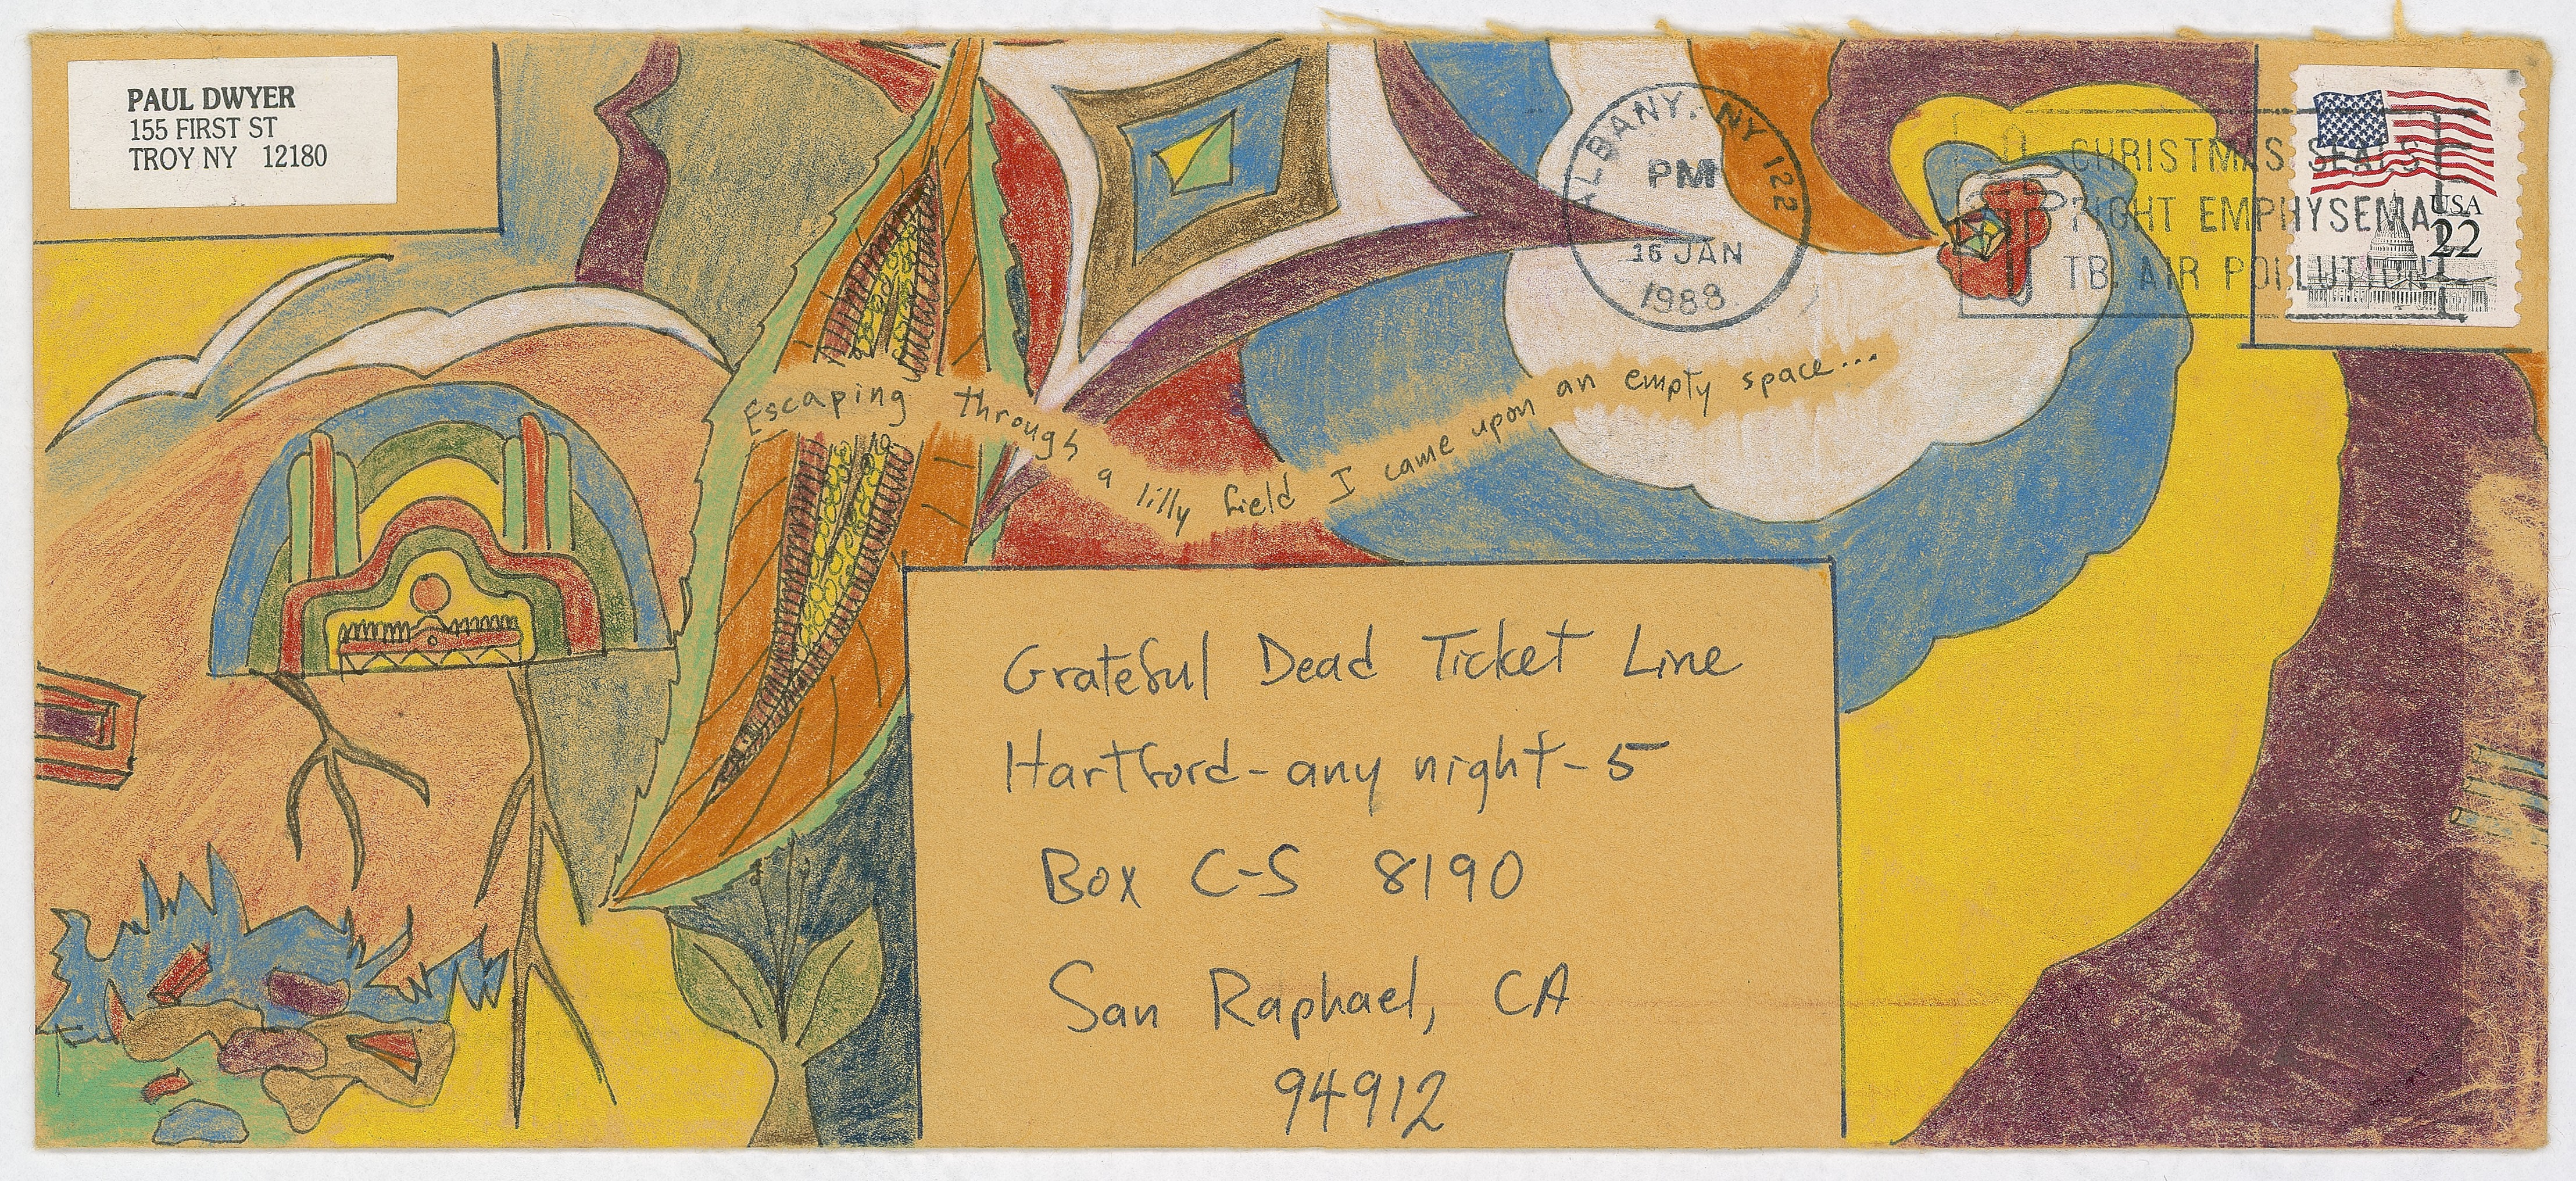 PAUL DWYER
155 FIRST ST
TROY NY 12180
ALBANY, NY 122
PM
16 JAN
1988
CHRISTMAS SEALS
FIGHT EMPHYSEMA
TB. AIR POLLUTION
USA
22
Escaping through a lilly field I came upon an empty space...
Grateful Dead Ticket Line
Hartford - any night - 5
Box C-S 8190
San Raphael, CA
94912